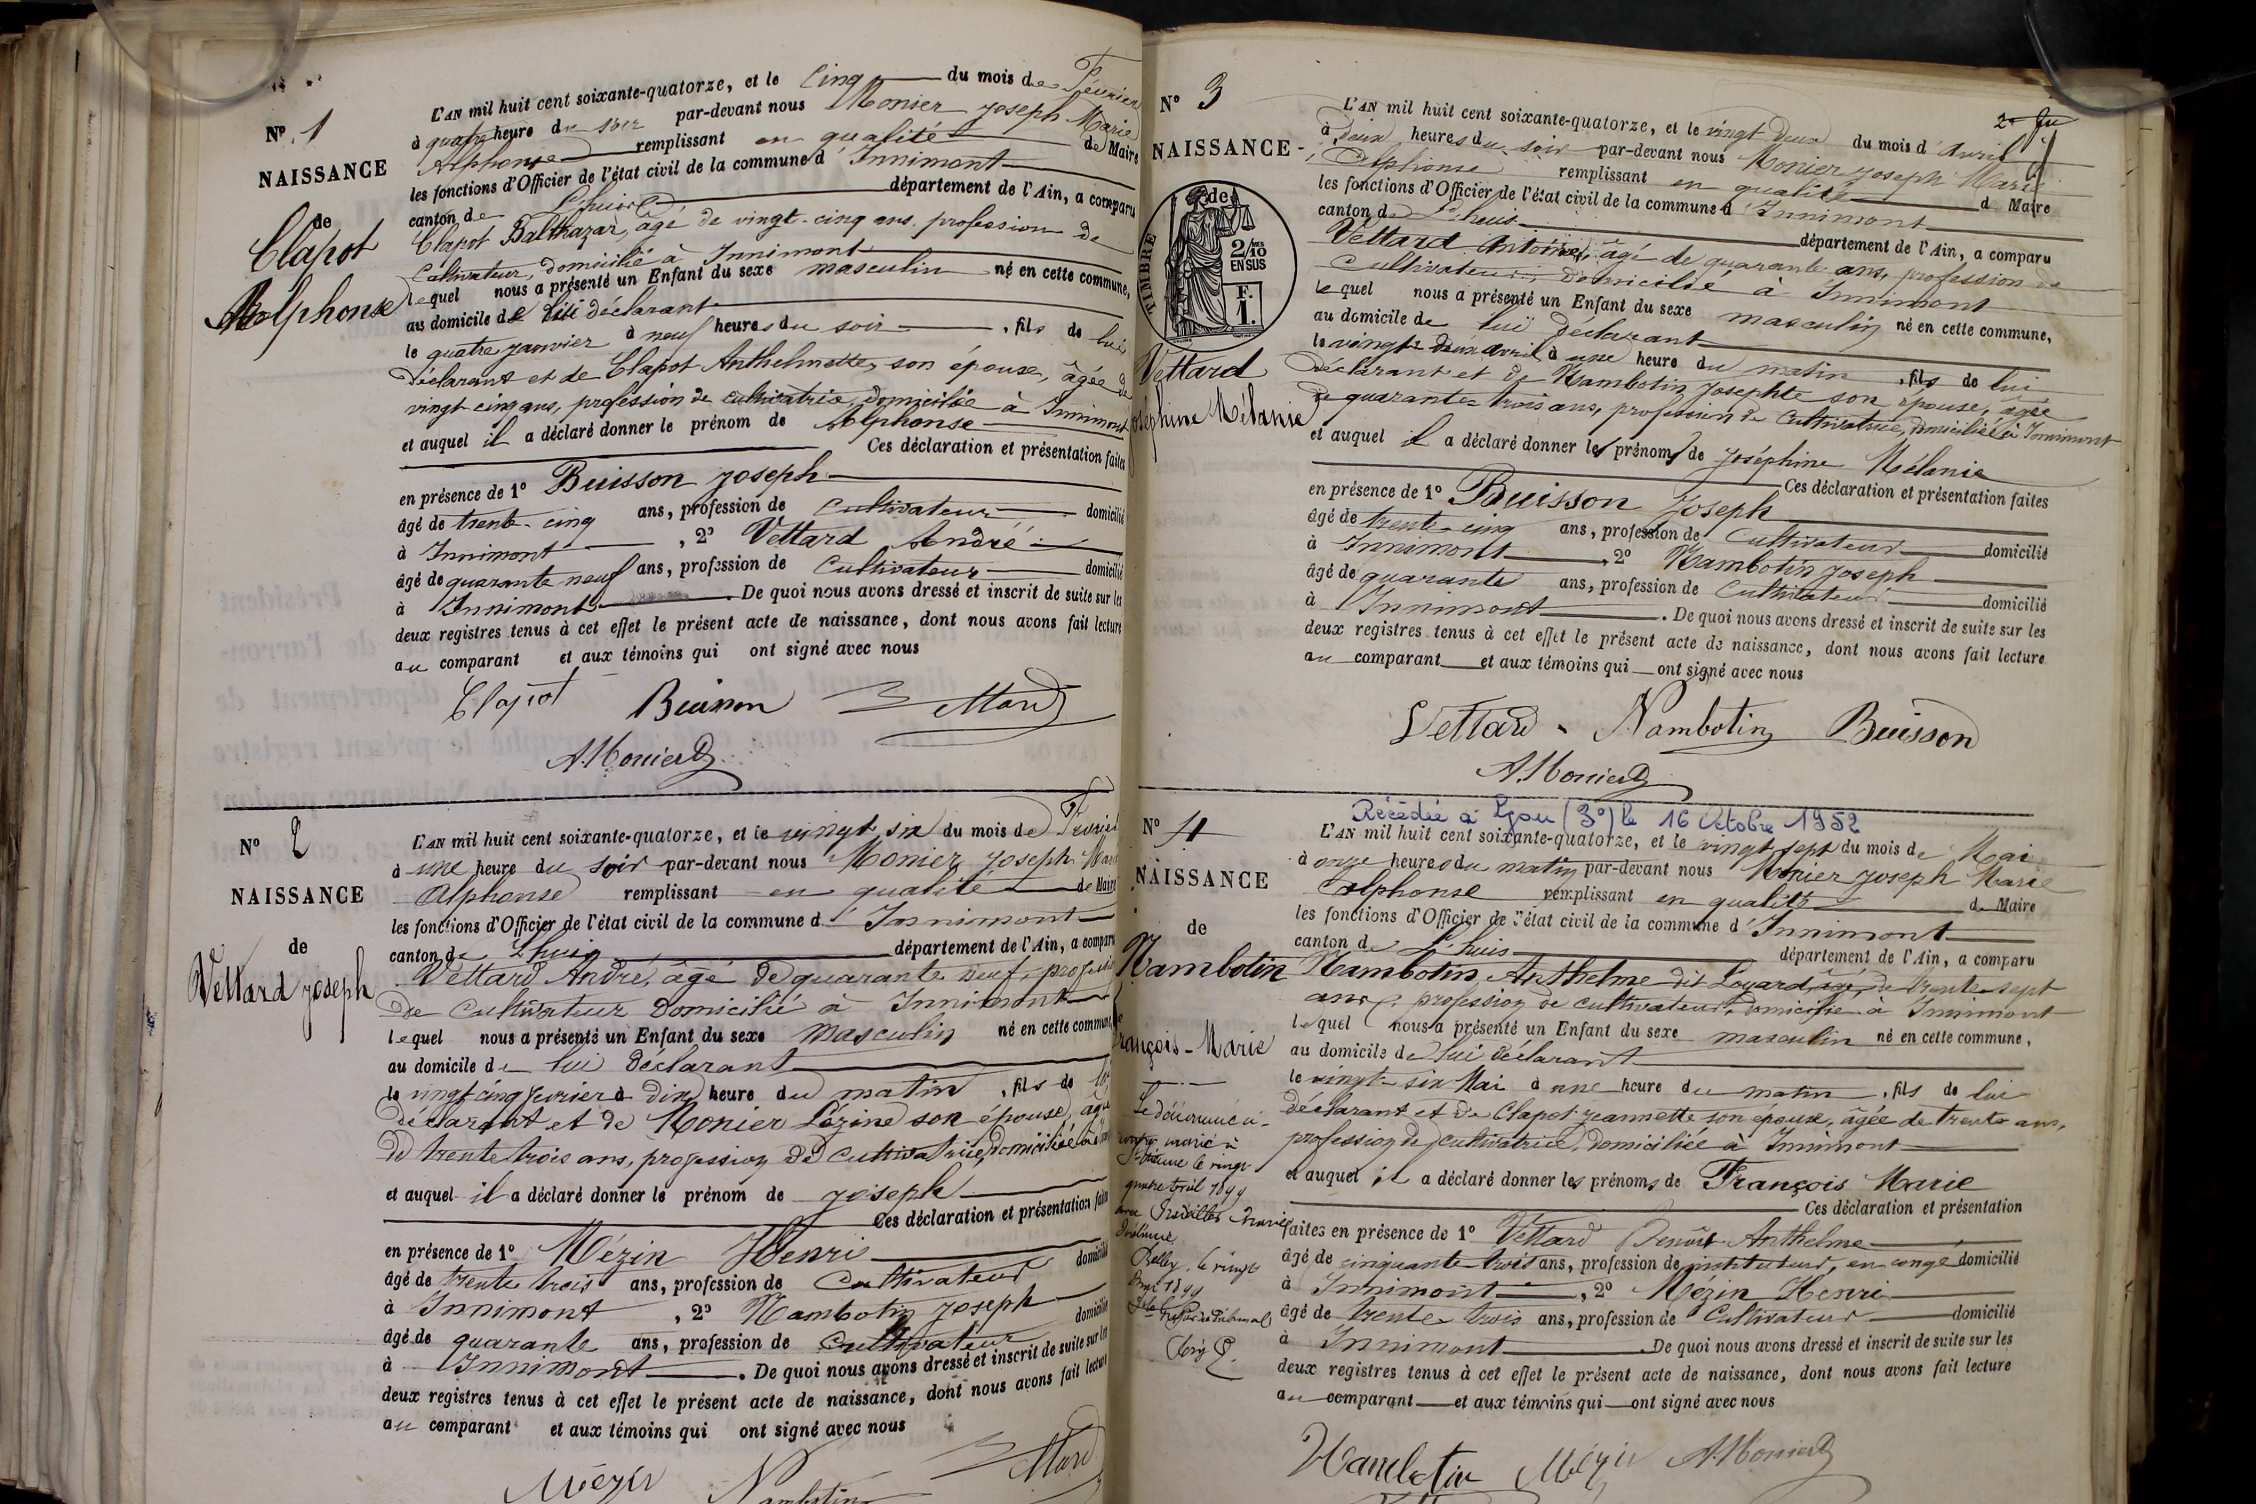 N° 1
NAISSANCE
de
Clapot
Alphonse
L'AN mil huit cent soixante-quatorze, et le Cinq du mois de Février
à quatre heure du soir par-devant nous Monier Joseph Marie
Alphonse remplissant en qualité de Maire
les fonctions d'Officier de l'état civil de la commune d'Innimont
canton de Lhuis département de l'Ain, a comparu
Clapot Balthazar, âgé de vingt-cinq ans, profession de
Cultivateur, domicilié à Innimont
lequel nous a présenté un Enfant du sexe masculin né en cette commune,
au domicile de lui déclarant
le quatre janvier à neuf heures du soir, fils de lui
déclarant et de Clapot Anthelmette, son épouse, âgée de
vingt-cinq ans, profession de cultivatrice, domiciliée à Innimont
et auquel il a déclaré donner le prénom de Alphonse
Ces déclaration et présentation faites
en présence de 1° Buisson Joseph
âgé de trente-cinq ans, profession de Cultivateur domicilié
à Innimont, 2° Vettard André
âgé de quarante neuf ans, profession de Cultivateur domicilié
à Innimont. De quoi nous avons dressé et inscrit de suite sur les
deux registres tenus à cet effet le présent acte de naissance, dont nous avons fait lecture
au comparant et aux témoins qui ont signé avec nous
Clapot Buisson Vettard
A. Monier
N° 2
NAISSANCE
de
Vettard Joseph
L'AN mil huit cent soixante-quatorze, et le vingt six du mois de Février
à une heure du soir par-devant nous Monier Joseph Marie
Alphonse remplissant en qualité de Maire
les fonctions d'Officier de l'état civil de la commune d'Innimont
canton de Lhuis département de l'Ain, a comparu
Vettard André, âgé de quarante neuf, profession
de Cultivateur domicilié à Innimont
lequel nous a présenté un Enfant du sexe masculin né en cette commune,
au domicile de lui déclarant
le vingt cinq février à dix heure du matin, fils de lui
déclarant et de Monier Lézine son épouse, âgée
de trente trois ans, profession de cultivatrice, domiciliée
et auquel il a déclaré donner le prénom de Joseph
Ces déclaration et présentation faites
en présence de 1° Mézin Henri
âgé de trente trois ans, profession de Cultivateur domicilié
à Innimont, 2° Nambotin Joseph
âgé de quarante ans, profession de Cultivateur domicilié
à Innimont. De quoi nous avons dressé et inscrit de suite sur les
deux registres tenus à cet effet le présent acte de naissance, dont nous avons fait lecture
au comparant et aux témoins qui ont signé avec nous
Mézin Nambotin Vettard
2e
N° 3
NAISSANCE
de
TIMBRE
2/10 EN SUS
F. 1.
Vettard
Joséphine Mélanie
L'AN mil huit cent soixante-quatorze, et le vingt deux du mois d'Avril
à deux heures du soir par-devant nous Monier Joseph Marie
Alphonse remplissant en qualité de Maire
les fonctions d'Officier de l'état civil de la commune d'Innimont
canton de Lhuis département de l'Ain, a comparu
Vettard Antoine, âgé de quarante ans, profession de
Cultivateur, domicilié à Innimont
lequel nous a présenté un Enfant du sexe masculin né en cette commune,
au domicile de lui déclarant
le vingt deux avril à une heure du matin, fils de lui
déclarant et de Nambotin Josephte son épouse, âgée
de quarante-trois ans, profession de Cultivatrice, domiciliée à Innimont
et auquel il a déclaré donner les prénoms de Joséphine Mélanie
Ces déclaration et présentation faites
en présence de 1° Buisson Joseph
âgé de trente-cinq ans, profession de Cultivateur domicilié
à Innimont, 2° Nambotin Joseph
âgé de quarante ans, profession de Cultivateur domicilié
à Innimont. De quoi nous avons dressé et inscrit de suite sur les
deux registres tenus à cet effet le présent acte de naissance, dont nous avons fait lecture
au comparant et aux témoins qui ont signé avec nous
Vettard Nambotin Buisson
A. Monier
Décédée à Lyon (3°) le 16 Octobre 1952
N° 4
NAISSANCE
de
Nambotin
François-Marie
Le dénommé ci-
contre marié à
le vingt
quatre avril 1899
avec Marie
Belley, le vingt
1899
L'AN mil huit cent soixante-quatorze, et le vingt sept du mois de Mai
à onze heures du matin par-devant nous Monier Joseph Marie
Alphonse remplissant en qualité de Maire
les fonctions d'Officier de l'état civil de la commune d'Innimont
canton de Lhuis département de l'Ain, a comparu
Nambotin Anthelme dit Loyard, âgé de trente-sept
ans, profession de cultivateur, domicilié à Innimont
lequel nous a présenté un Enfant du sexe masculin né en cette commune,
au domicile de lui déclarant
le vingt-six Mai à une heure du matin, fils de lui
déclarant et de Clapot Jeannette son épouse, âgée de trente ans,
profession de cultivatrice, domiciliée à Innimont
et auquel il a déclaré donner les prénoms de François Marie
Ces déclaration et présentation
faites en présence de 1° Vettard Benoît Anthelme
âgé de cinquante-trois ans, profession de instituteur, en congé domicilié
à Innimont, 2° Mézin Henri
âgé de trente-trois ans, profession de Cultivateur domicilié
à Innimont. De quoi nous avons dressé et inscrit de suite sur les
deux registres tenus à cet effet le présent acte de naissance, dont nous avons fait lecture
au comparant et aux témoins qui ont signé avec nous
Nambotin Mézin A. Monier